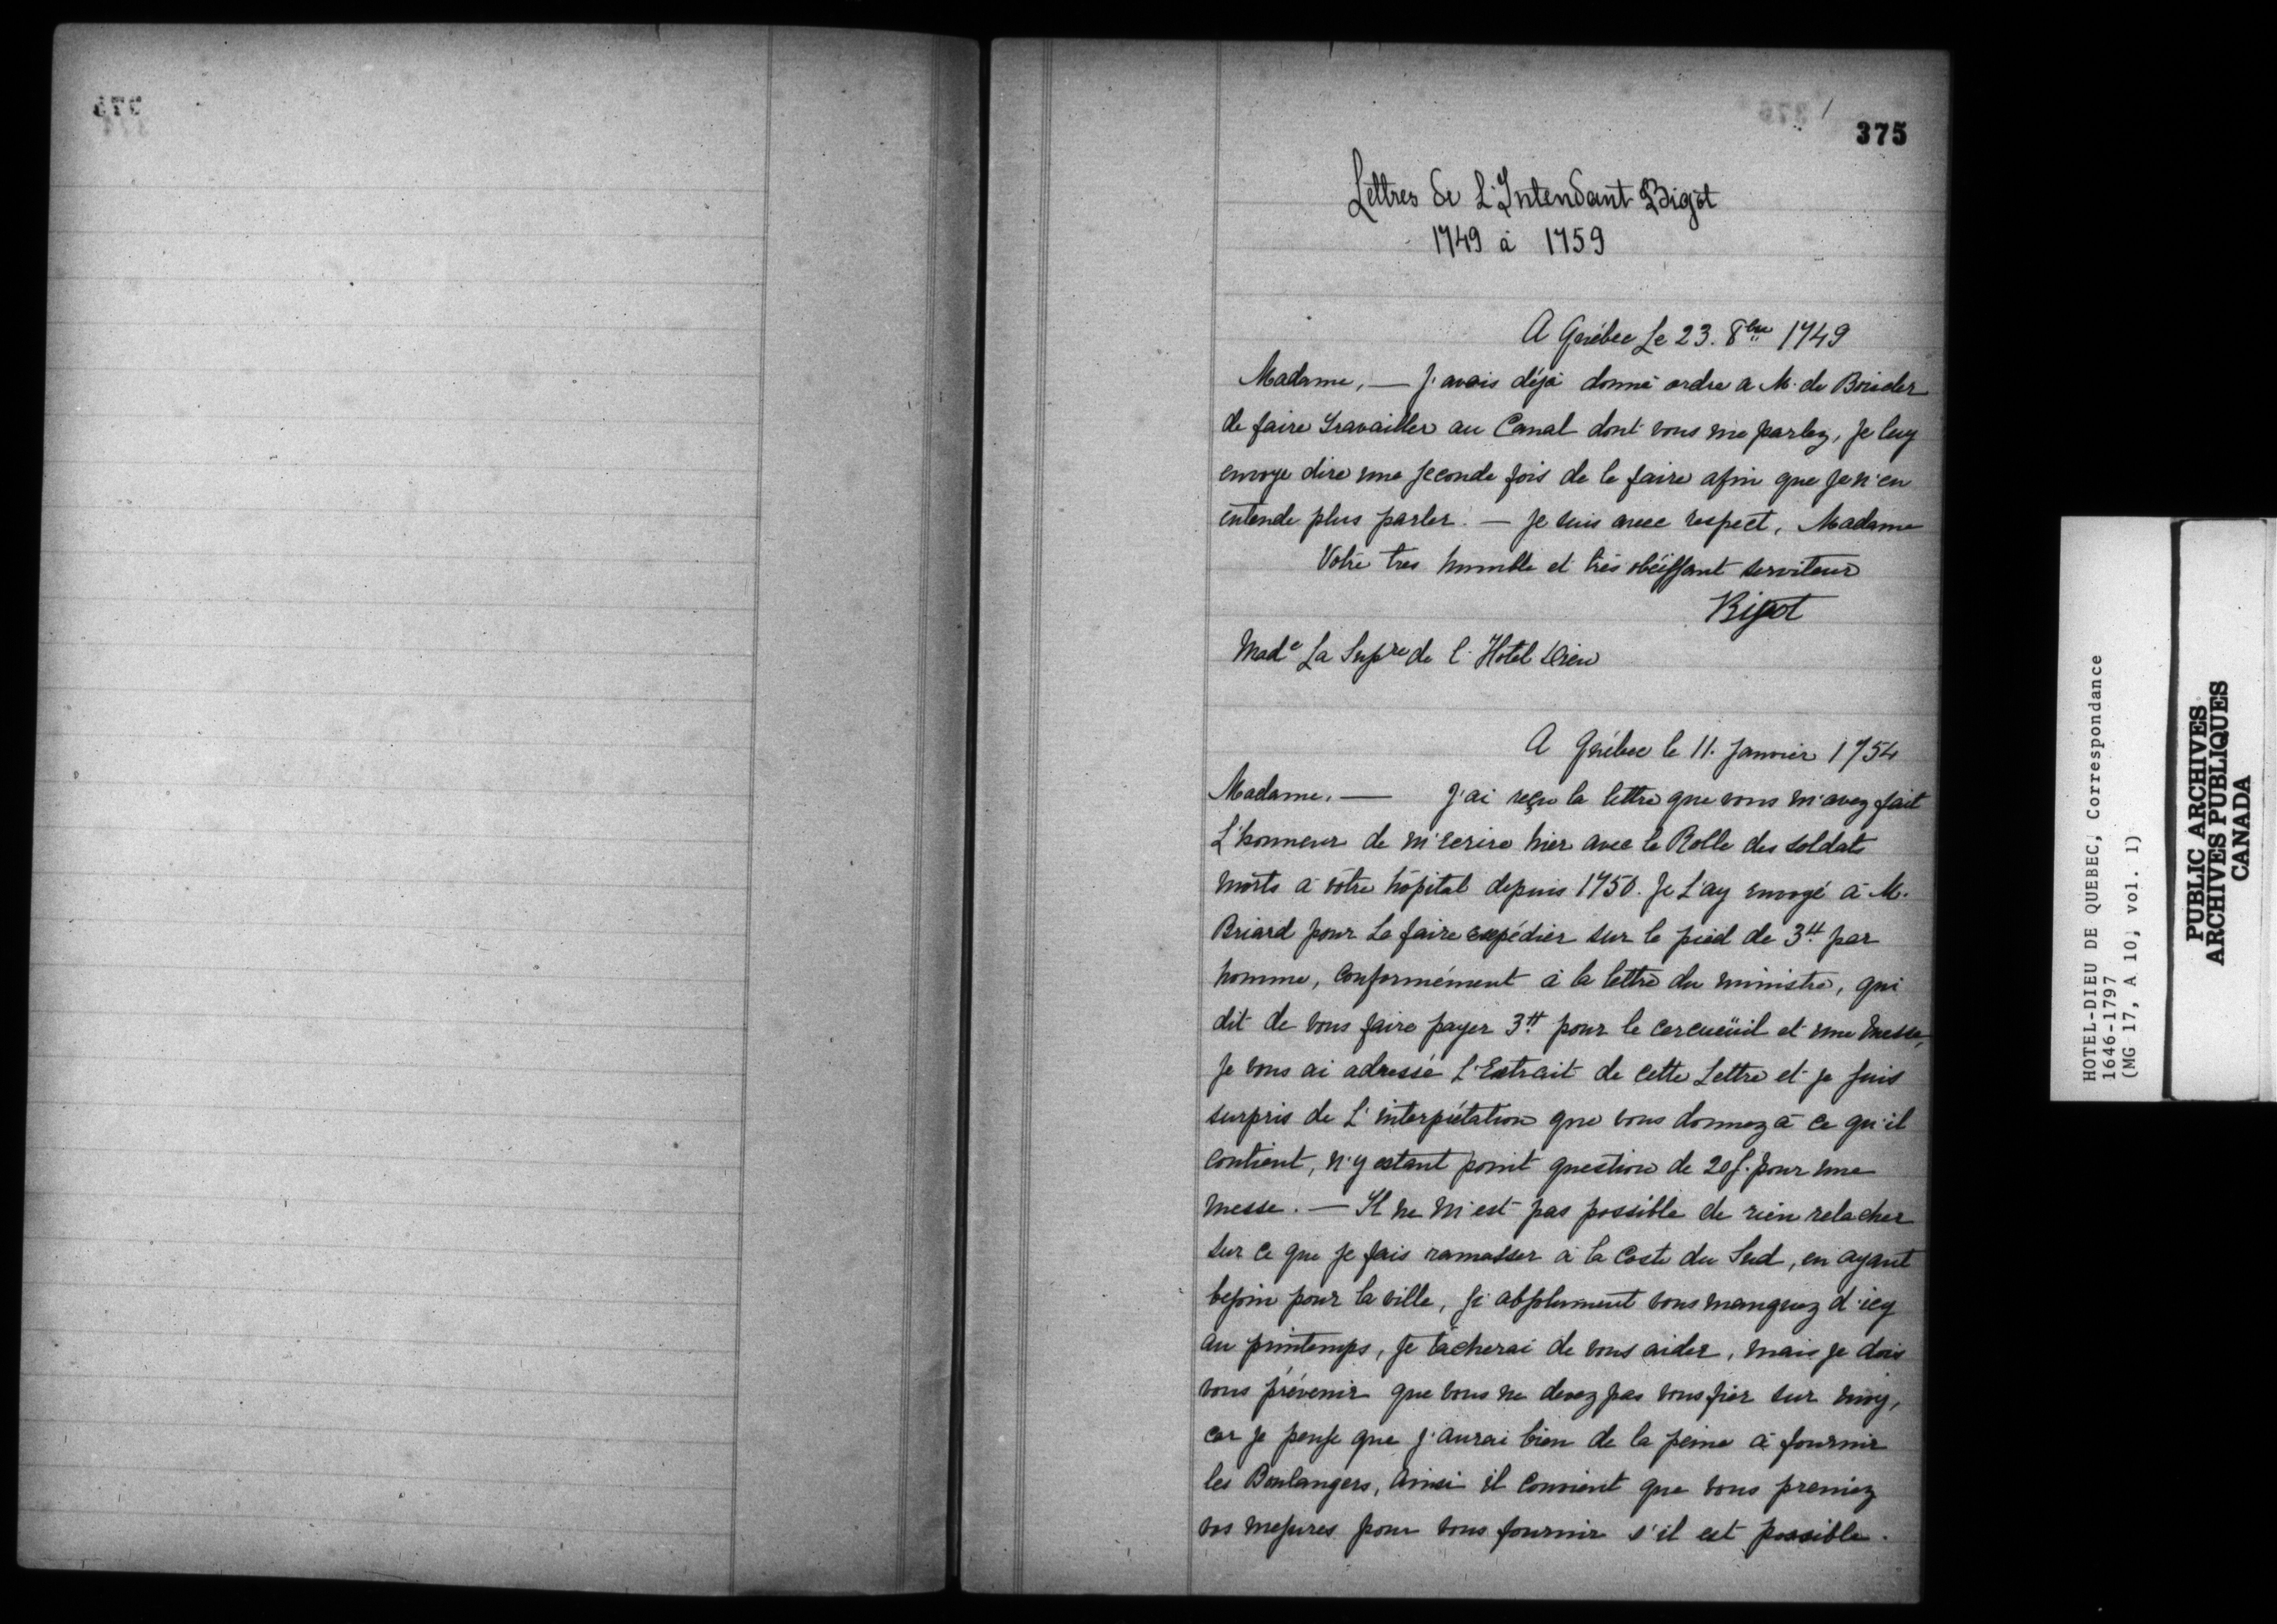 375
Lettres de L'Intendant Bigot
1749 à 1759
A Québec Le 23. 8bre 1749
Madame, — J'avais déjà donné ordre a M. de Boiscler
de faire travailler au Canal dont vous me parlez, Je luy
envoye dire une seconde fois de le faire afin que Je n'en
entende plus parler. — Je suis avec respect, Madame
Votre tres humble et très obéissant serviteur
Bigot
Made La Supre de l'Hotel Dieu
A Québec le 11. Janvier 1754
Madame, — J'ai reçu la lettre que vous m'avez fait
L'honneur de m'ecrire hier avec le Rolle des soldats
morts à vôtre hôpital depuis 1750. Je L'ay envoyé à M.
Briard pour La faire expédier sur le pied de 3tt par
homme, conformément à la lettre du ministre, qui
dit de vous faire payer 3tt pour le cercueüil et une messe,
Je vous ai adressé L'Extrait de cette Lettre et je suis
surpris de L'interprétation que vous donnez à ce qu'il
contient, n'y estant point question de 20s. pour une
messe. — Il ne m'est pas possible de rien relacher
sur ce que Je fais ramasser à la Coste du Sud, en ayant
besoin pour la ville, si absolument vous manquez d'icy
au printemps, Je tâcherai de vous aider, mais je dois
vous prévenir que vous ne devez pas vous fier sur moy,
car Je pense que j'aurai bien de la peine à fournir
les Boulangers, Ainsi il convient que vous preniez
vos mesures pour vous fournir s'il est possible.
HOTEL-DIEU DE QUEBEC, Correspondance
1646-1797
(MG 17, A 10, vol. 1)
PUBLIC ARCHIVES
ARCHIVES PUBLIQUES
CANADA